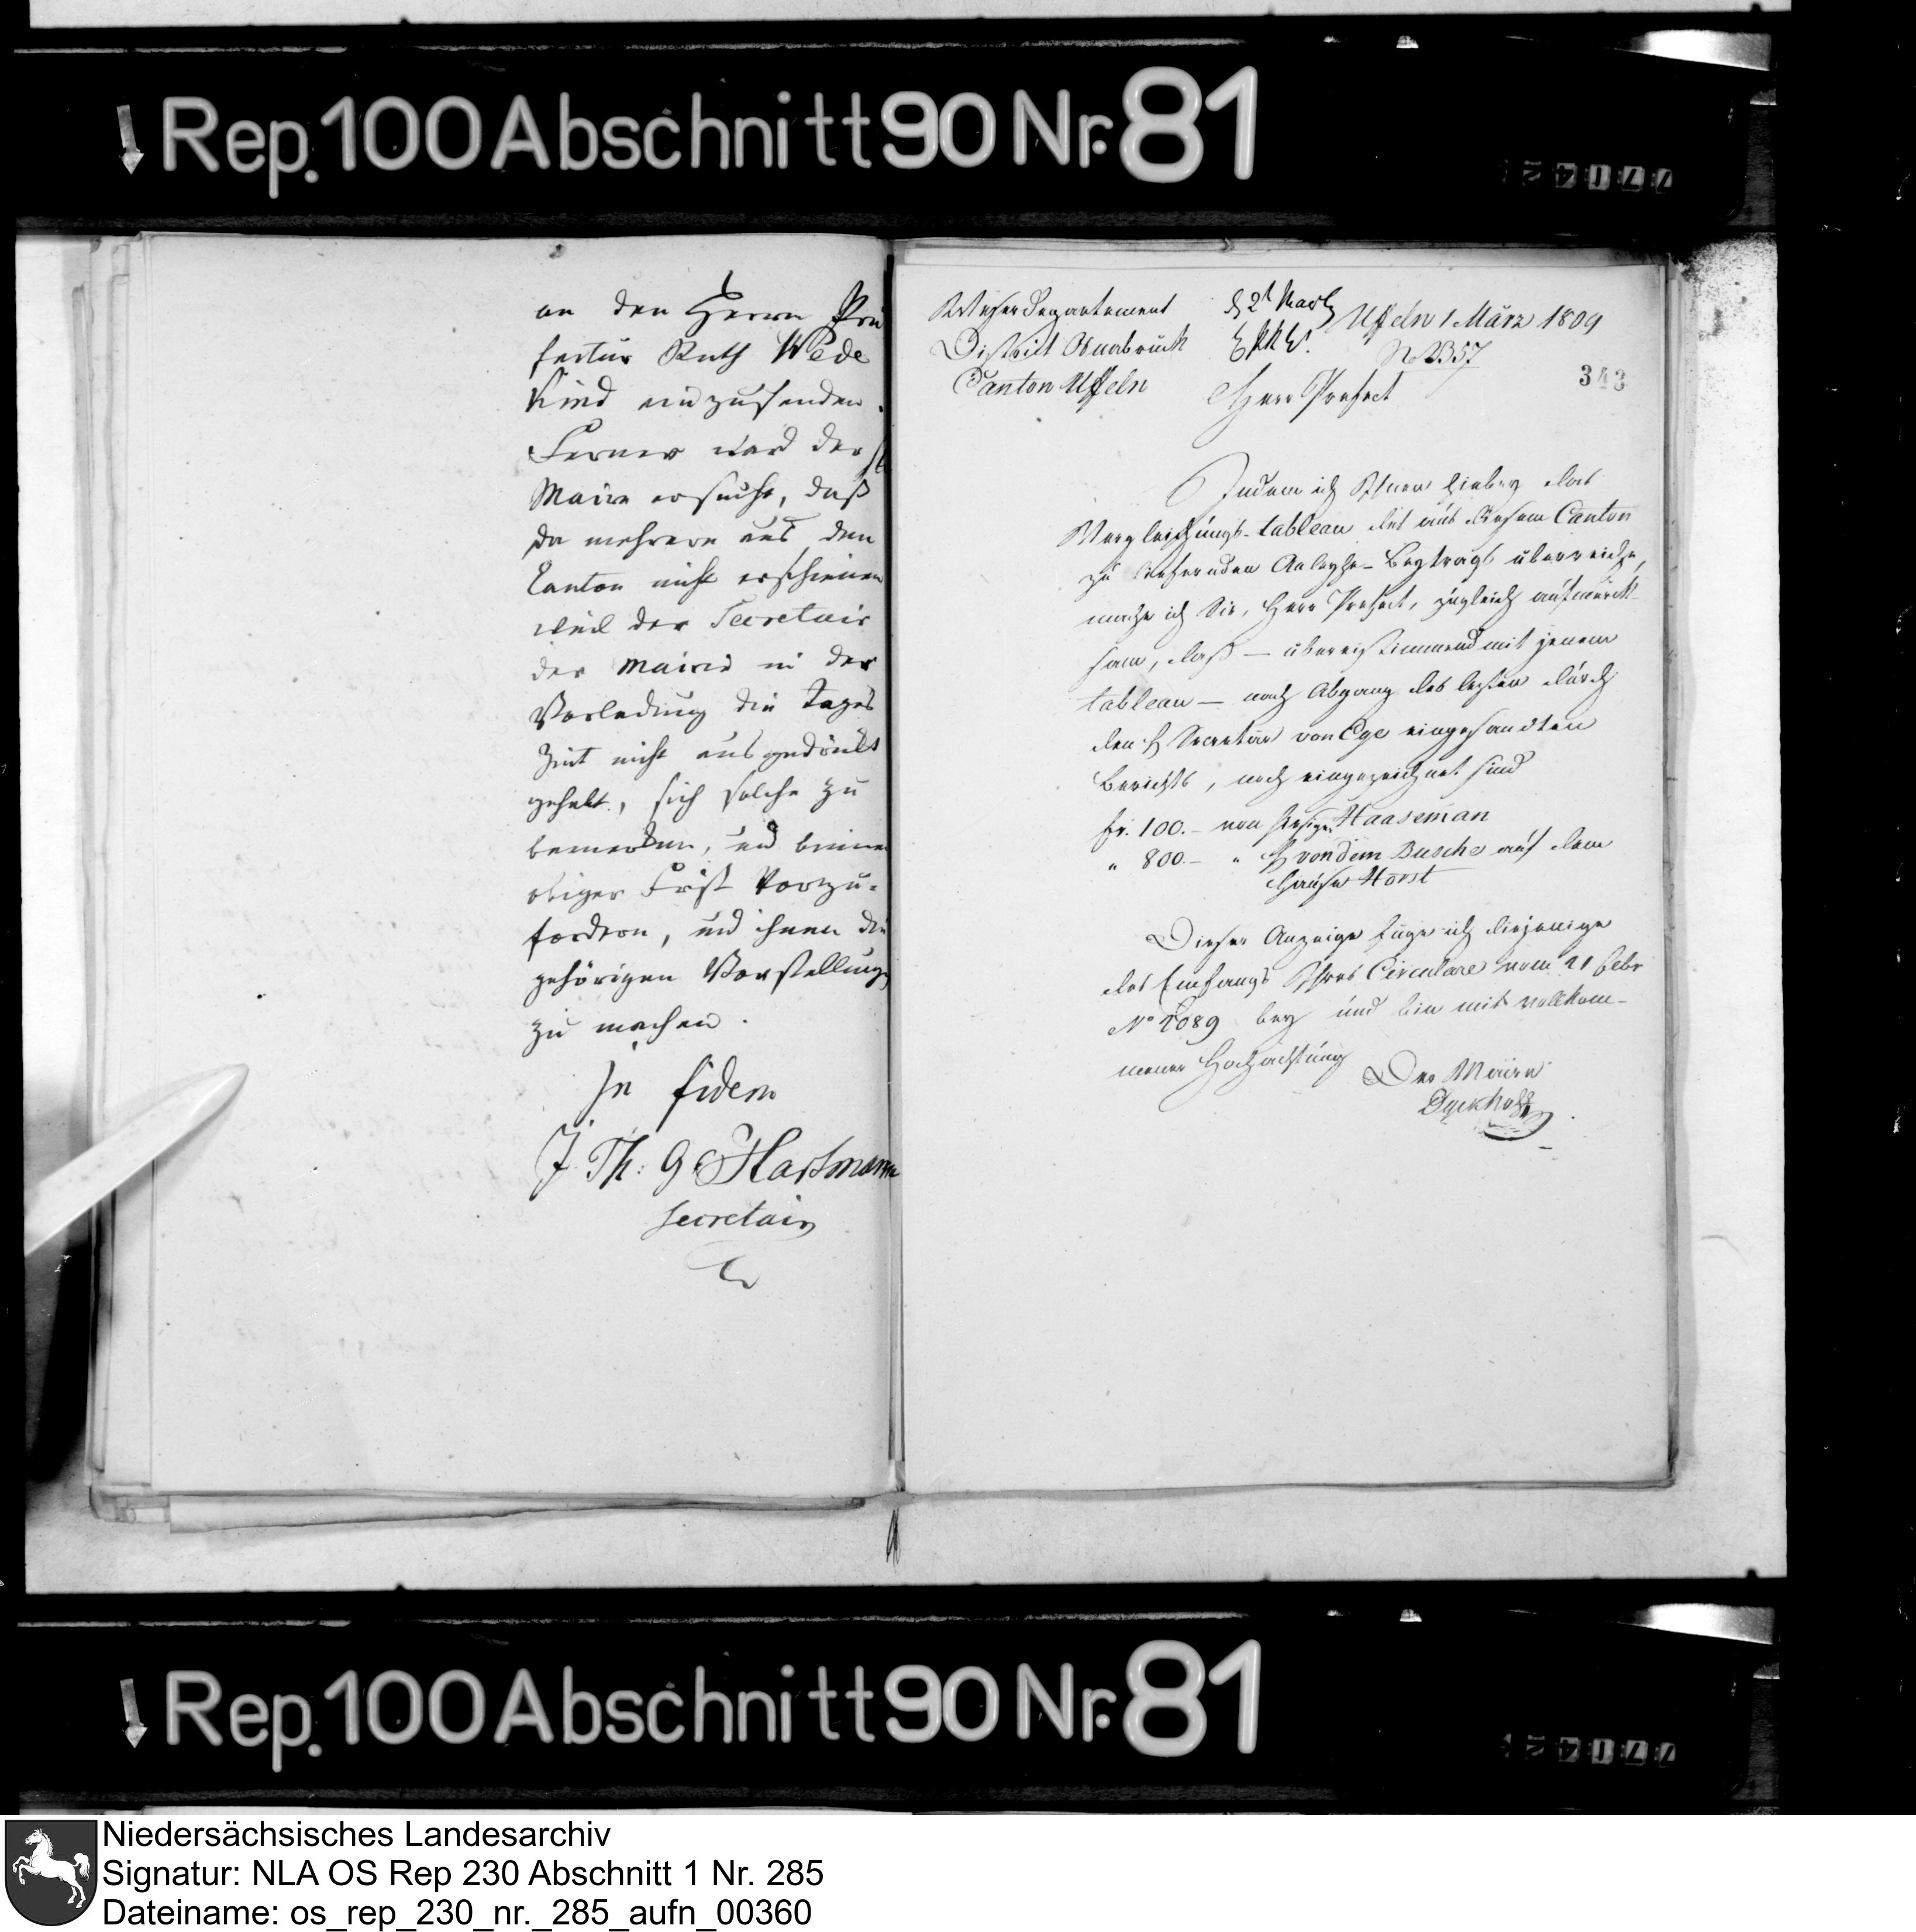 Rep. 100 Abschnitt 90 Nr. 81
an den Herrn Prä
fectur Rath Wede
Kind einzusenden.
Ferner ward der H
Maire ersucht, daß
da mehrere aus dem
Canton nicht erschienen
weil der Secretair
der Mairie in der
Vorladung die Tages
Zeit nicht ausgedrückt
gehabt, sich solche zu
bemerken, und binnen
obiger Frist Vorzu-
fordern, und ihnen die
gehörigen Vorstellung
zu machen.
In fidem
J. Th. G. Hartmann
Secretair
Weserdepartement
District Osnabrück
Canton Uffeln
d 2t Martz
Uffeln 1 März 1809
No 2357
343
Herr Präfect
Indem ich Ihnen hiebey das
Vergleichungs-tableau des aus diesem Canton
zu liefernden Anleyhe-Beytrags überreiche,
mache ich Sie, Herr Präfect, zugleich aufmerk-
sam, daß — übereinstimmend mit jenem
tableau — nach Abgang des letzten durch
den H Secretär von Ege eingesandten
Berichts, noch eingezeichnet sind
fr. 100.- von Haaseman
" 800.- " H von dem Busche auf dem
Hause Horst
Dieser Anzeige füge ich diejenige
des Empfangs Ihres Circulare vom 21 febr
No 2089 bey und bin mit vollkom-
mener Hochachtung
Der Maire
Dyckhoff
Rep. 100 Abschnitt 90 Nr. 81
Niedersächsisches Landesarchiv
Signatur: NLA OS Rep 230 Abschnitt 1 Nr. 285
Dateiname: os_rep_230_nr._285_aufn_00360